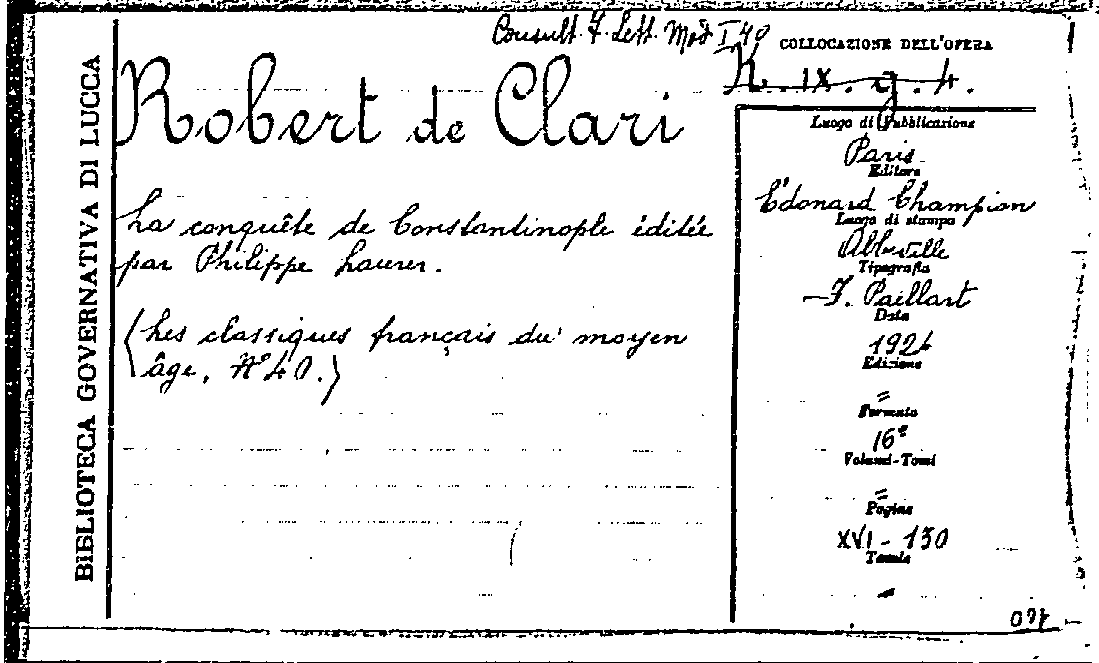 BIBLIOTECA GOVERNATIVA DI LUCCA
Consult. F. Lett. Mod I 40
COLLOCAZIONE DELL'OPERA
N. IX. g. 4.
Robert de Clari
La conquête de Constantinople éditée
par Philippe Lauer.
(Les classiques français du moyen
âge, N° 40.)
Luogo di Pubblicazione
Paris
Editore
Édonard Champion
Luogo di stampa
Abbeville
Tipografia
F. Paillart
Data
1924
Edizione
=
Formato
16°
Volumi-Tomi
=
Pagine
XVI - 130
Tavole